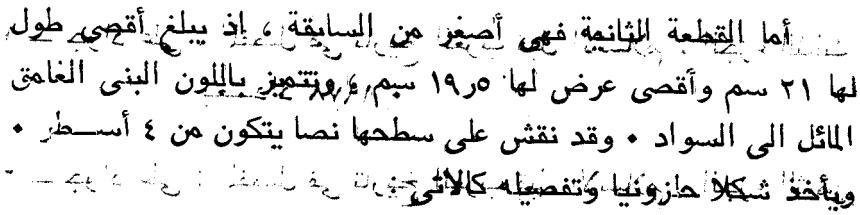 أما القطعة الثانية فهى أصغر من السابقة ، إذ يبلغ أقصى طول
لها ٢١ سم وأقصى عرض لها ١٩ر٥ سم ، وتتميز باللون البنى الغامق
المائل الى السواد ٠ وقد نقش على سطحها نصا يتكون من ٤ أسـطر ٠
ويأخذ شكلا حازونيا وتفصيله كالاتى :